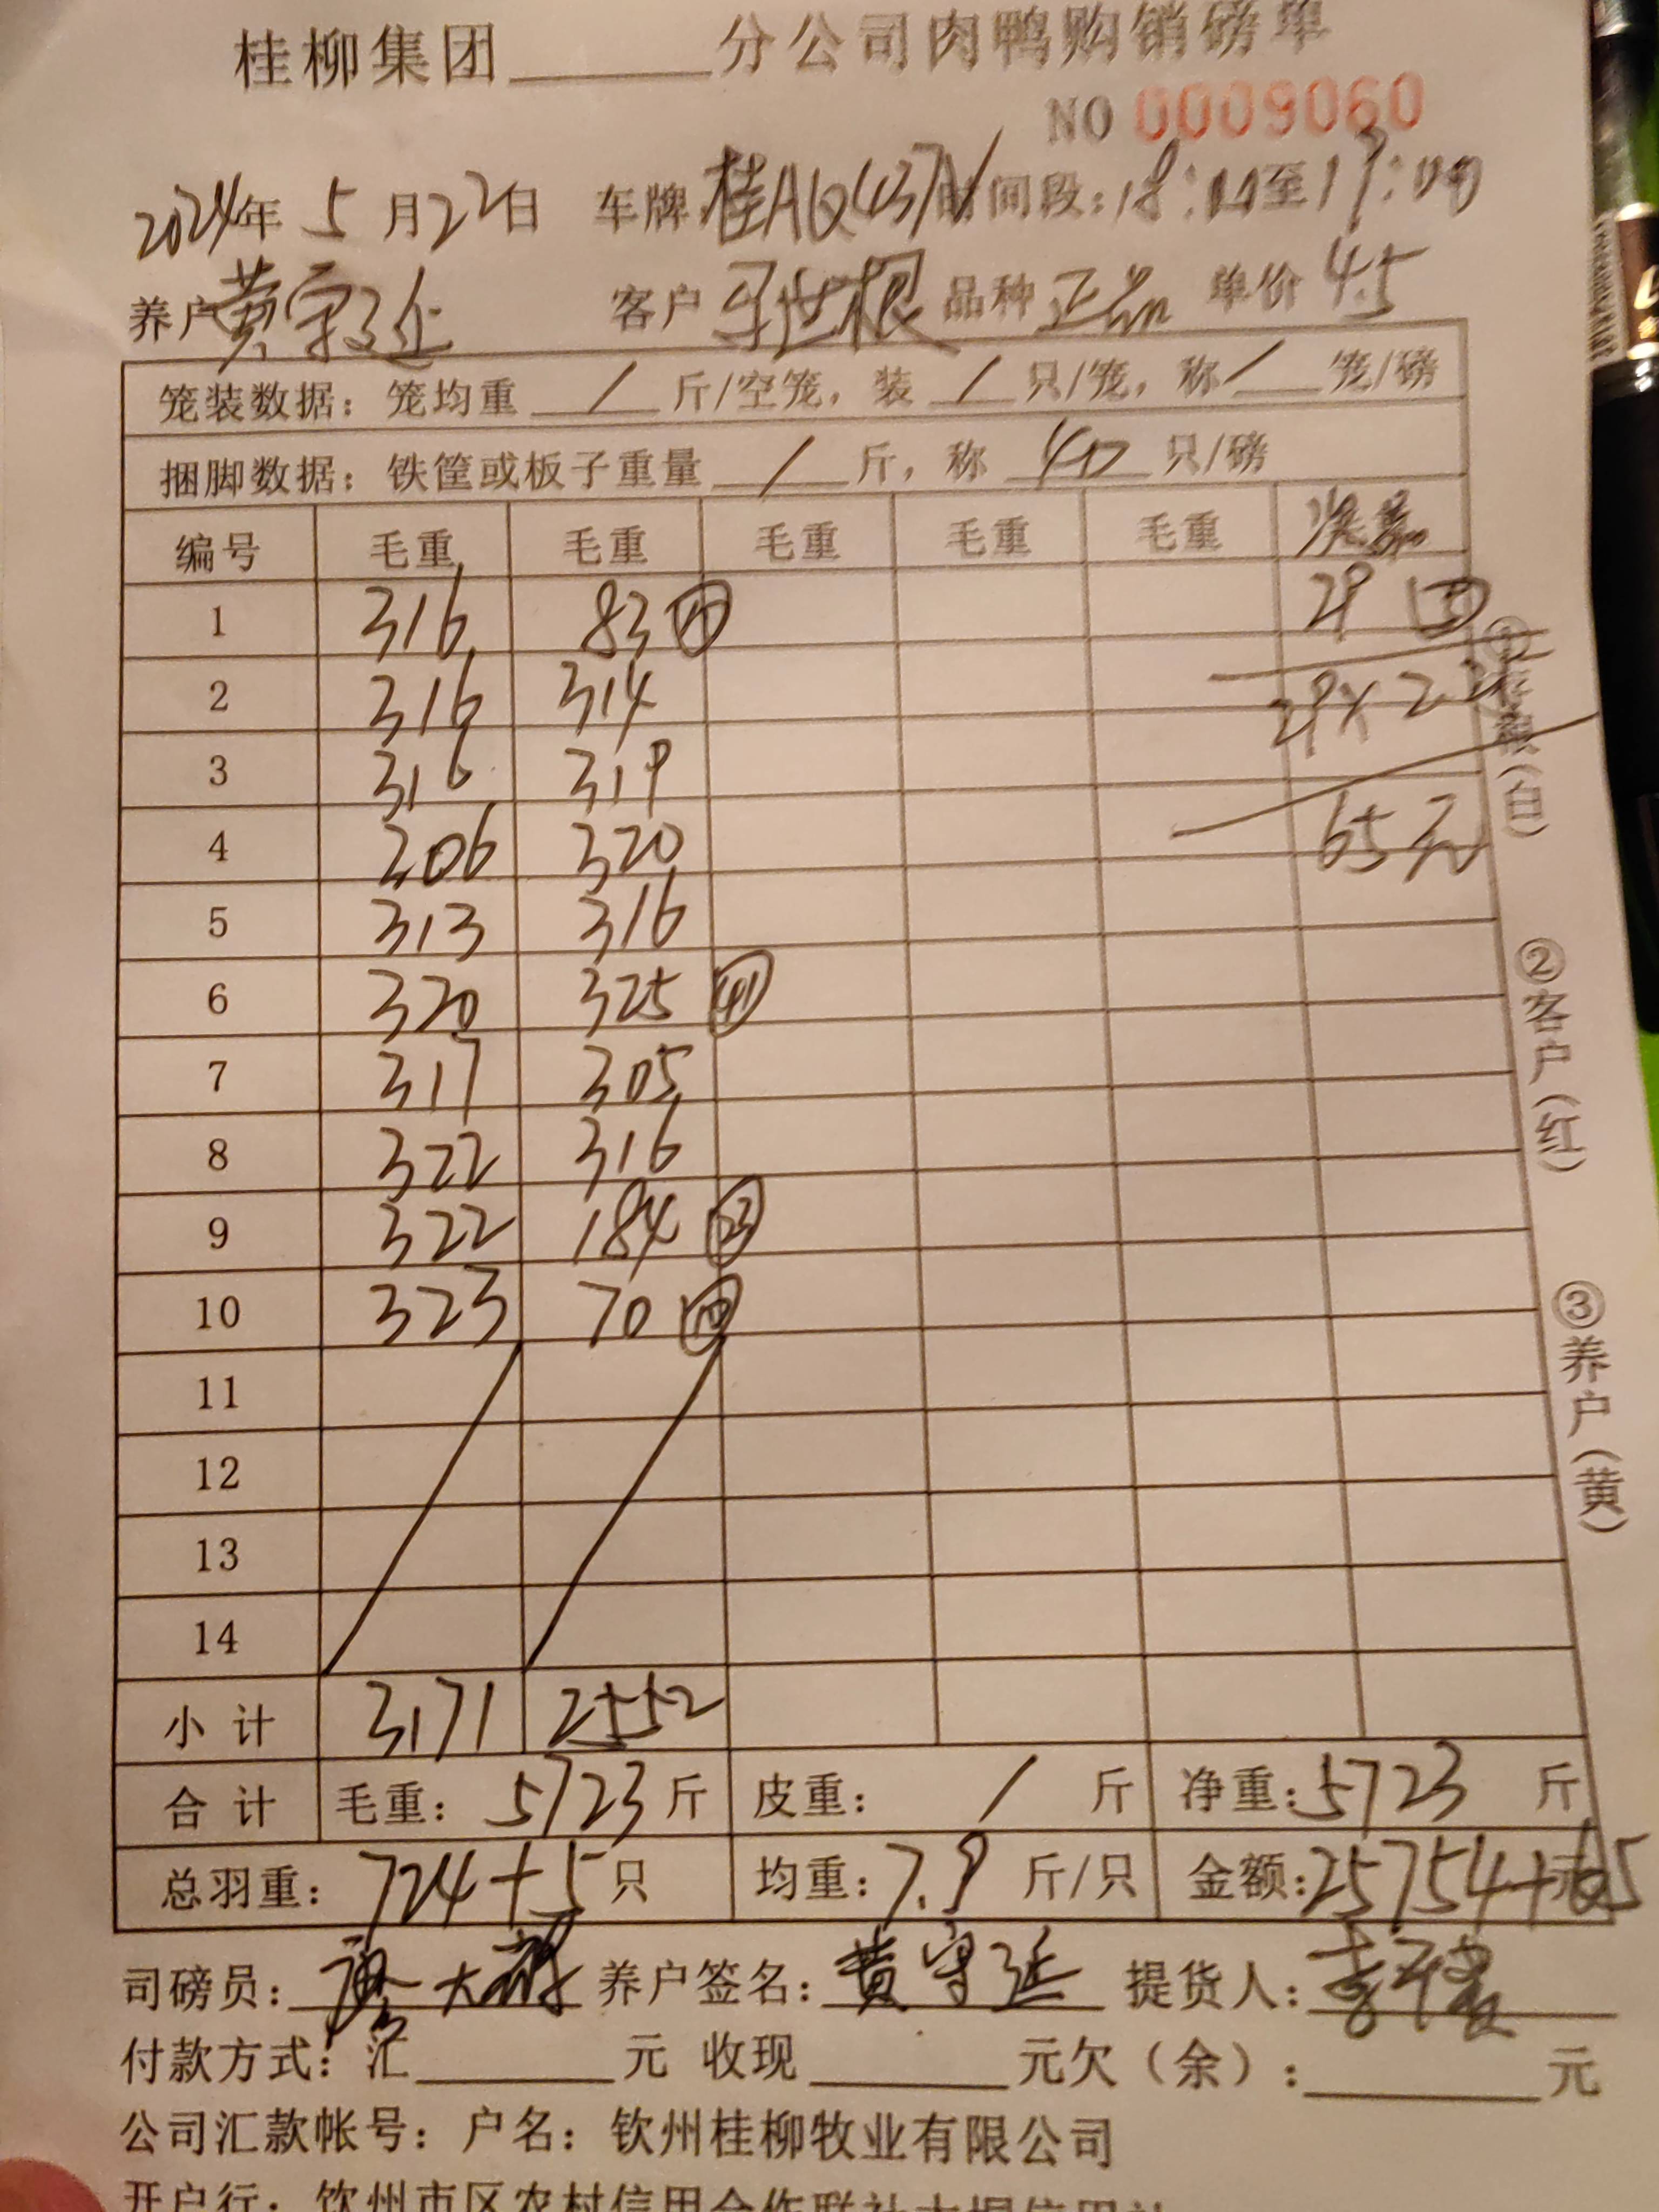 桂柳集团______分公司肉鸭购销磅单
NO 0009060
2024年 5 月22日 车牌 桂A 时间段:18:00至19:00
养户 黄守延 客户 世根 品种 正品 单价 4.5
笼装数据：笼均重 / 斤/空笼，装 / 只/笼，称 / 笼/磅
捆脚数据：铁筐或板子重量 / 斤，称 40 只/磅
编号 毛重 毛重 毛重 毛重 毛重
1 316 83 29 ⑤
2 316 314 29×2.25
3 316 319
4 206 320 65元
5 313 316
6 320 325 ㊶
7 317 305
8 322 316
9 322 184 ㉓
10 323 70 ⑩
11
12
13
14
小 计 3171 2552
合 计 毛重：5723 斤 皮重： / 斤 净重：5723 斤
总羽重：724+5 只 均重：7.9 斤/只 金额：25754+65元
司磅员： 大 养户签名：黄守延 提货人：李
付款方式：汇______元 收现______元欠（余）：______元
公司汇款帐号：户名：钦州桂柳牧业有限公司
开户行：钦州市区农村信用合作联社大垌信用社
①存根（白）
②客户（红）
③养户（黄）